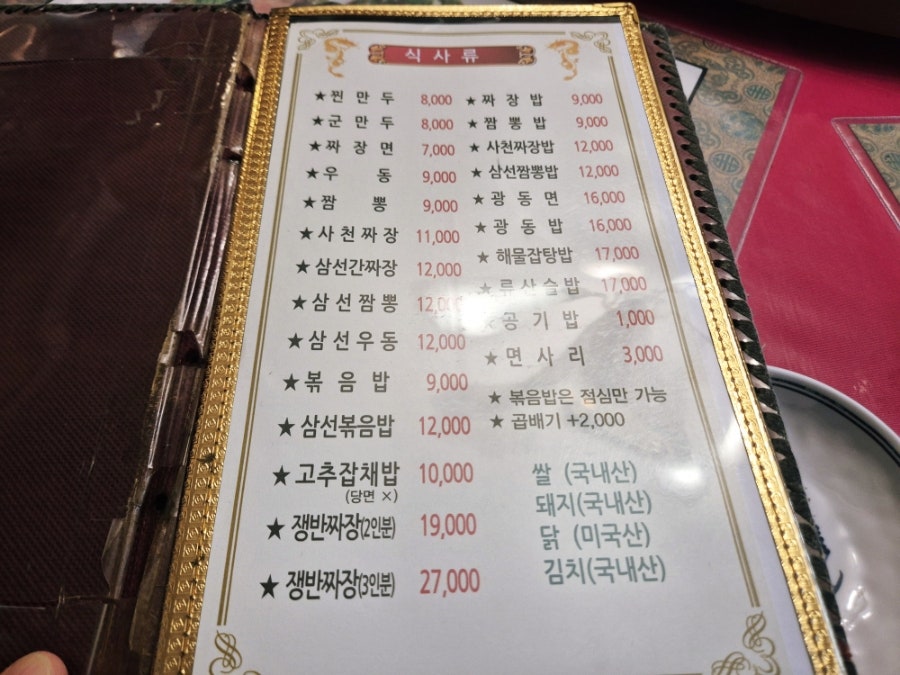 식사류
★ 찐만두 8,000
★ 군만두 8,000
★ 짜장면 7,000
★ 우동 9,000
★ 짬뽕 9,000
★ 사천짜장 11,000
★ 삼선간짜장 12,000
★ 삼선짬뽕 12,000
★ 삼선우동 12,000
★ 볶음밥 9,000
★ 삼선볶음밥 12,000
★ 고추잡채밥 10,000
(당면 ×)
★ 쟁반짜장(2인분) 19,000
★ 쟁반짜장(3인분) 27,000
★ 짜장밥 9,000
★ 짬뽕밥 9,000
★ 사천짜장밥 12,000
★ 삼선짬뽕밥 12,000
★ 광동면 16,000
★ 광동밥 16,000
★ 해물잡탕밥 17,000
★ 류사슬밥 17,000
★ 공기밥 1,000
★ 면사리 3,000
★ 볶음밥은 점심만 가능
★ 곱배기 +2,000
쌀 (국내산)
돼지(국내산)
닭 (미국산)
김치(국내산)